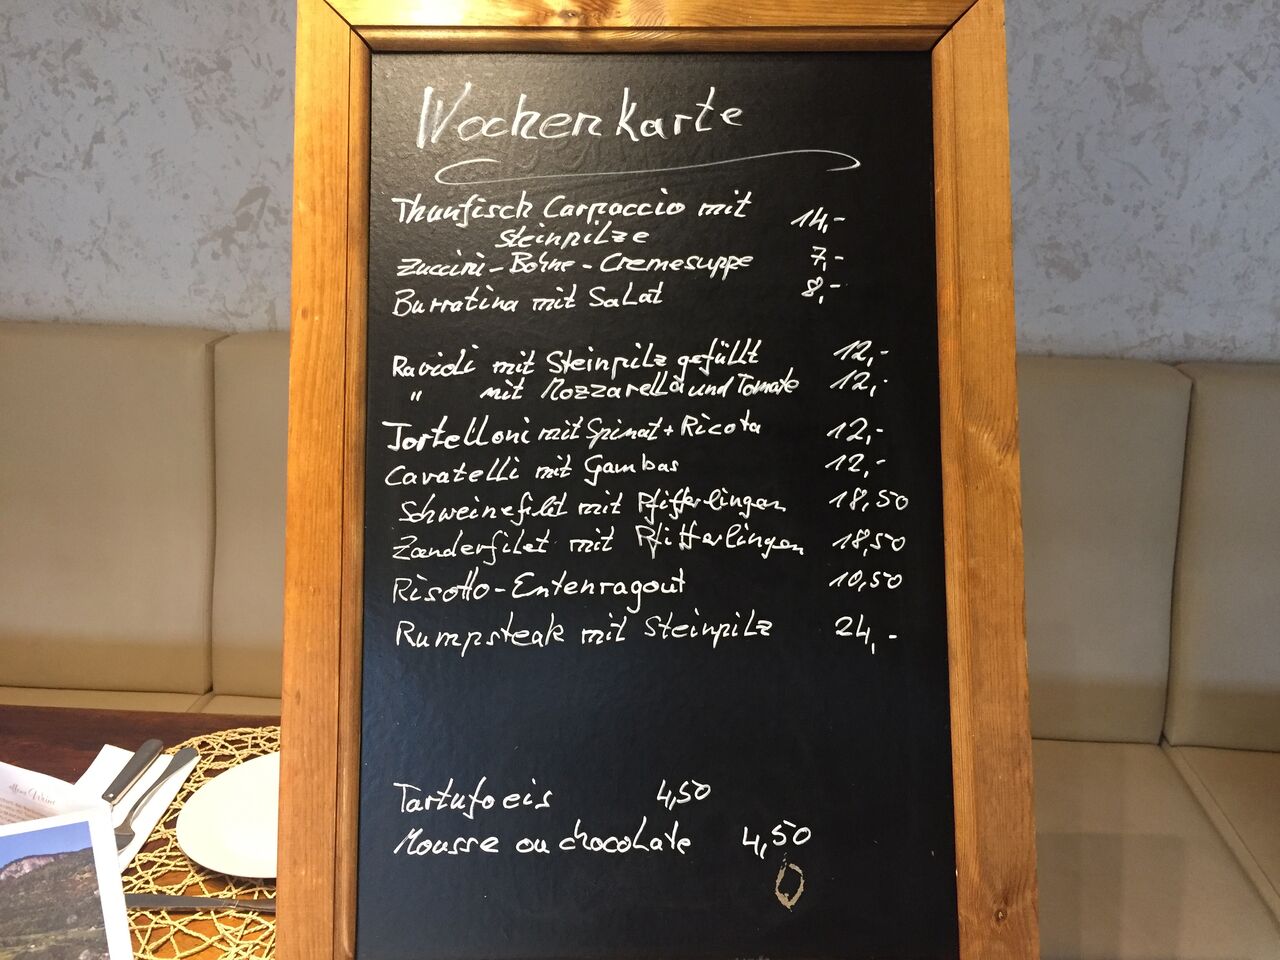 Wochenkarte
Thunfisch Carpaccio mit 14,-
Steinpilze
Zuccini-Bohne-Cremesuppe 7,-
Burratina mit Salat 8,-
Ravioli mit Steinpilz gefüllt 12,-
" mit Mozzarella und Tomate 12,-
Tortelloni mit Spinat + Ricota 12,-
Cavatelli mit Gambas 12,-
Schweinefilet mit Pfifferlingen 18,50
Zanderfilet mit Pfifferlingen 18,50
Risotto-Entenragout 10,50
Rumpsteak mit Steinpilz 24,-
Tartufoeis 4,50
Mousse ou chocolate 4,50